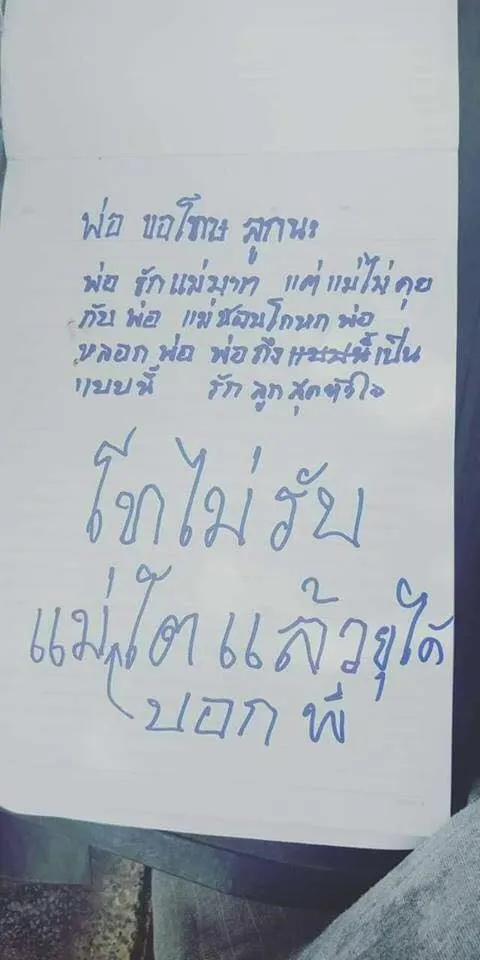 พ่อ ขอโทษ ลูกนะ
พ่อ รักแม่มาก แต่แม่ไม่คุย
กับ พ่อ แม่ชอบโกหก พ่อ
หลอก พ่อ พ่อถึง เป็น
แบบนี้ รัก ลูก สุดหัวใจ
โทไม่รับ
แม่โตแล้วยุได้
บอก พี่